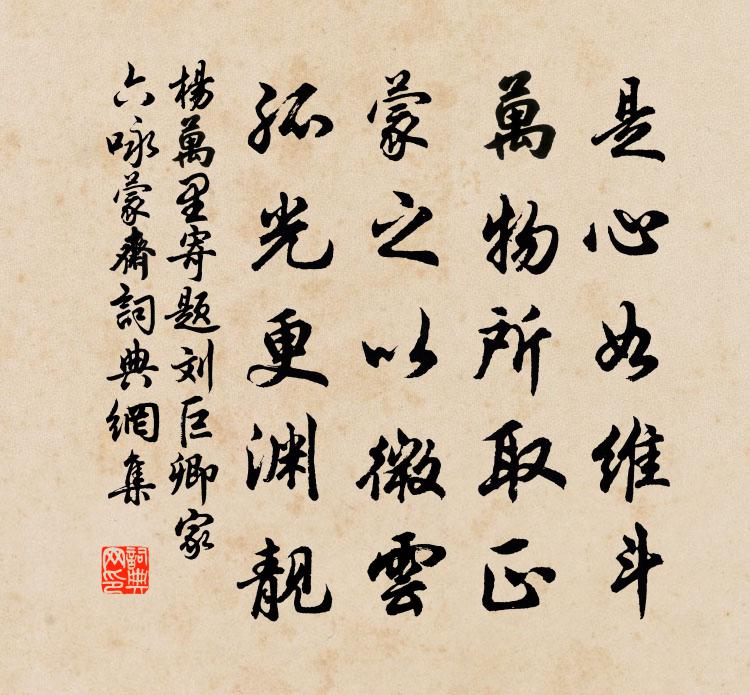 是心如維斗
萬物所取正
蒙之以微雲
孤光更渊靚
楊萬里寄題刘巨卿家
六咏蒙齋詞典網集
詞典
网印